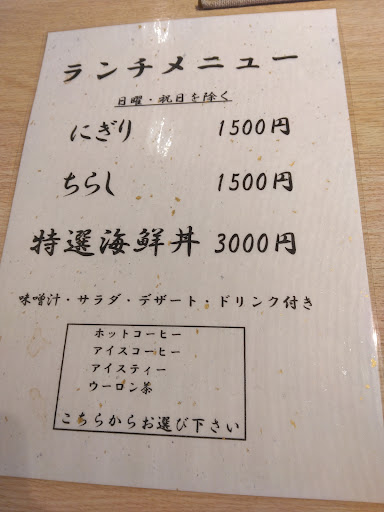 ランチメニュー
日曜・祝日を除く
にぎり 1500円
ちらし 1500円
特選海鮮丼 3000円
味噌汁・サラダ・デザート・ドリンク付き
ホットコーヒー
アイスコーヒー
アイスティー
ウーロン茶
こちらからお選び下さい